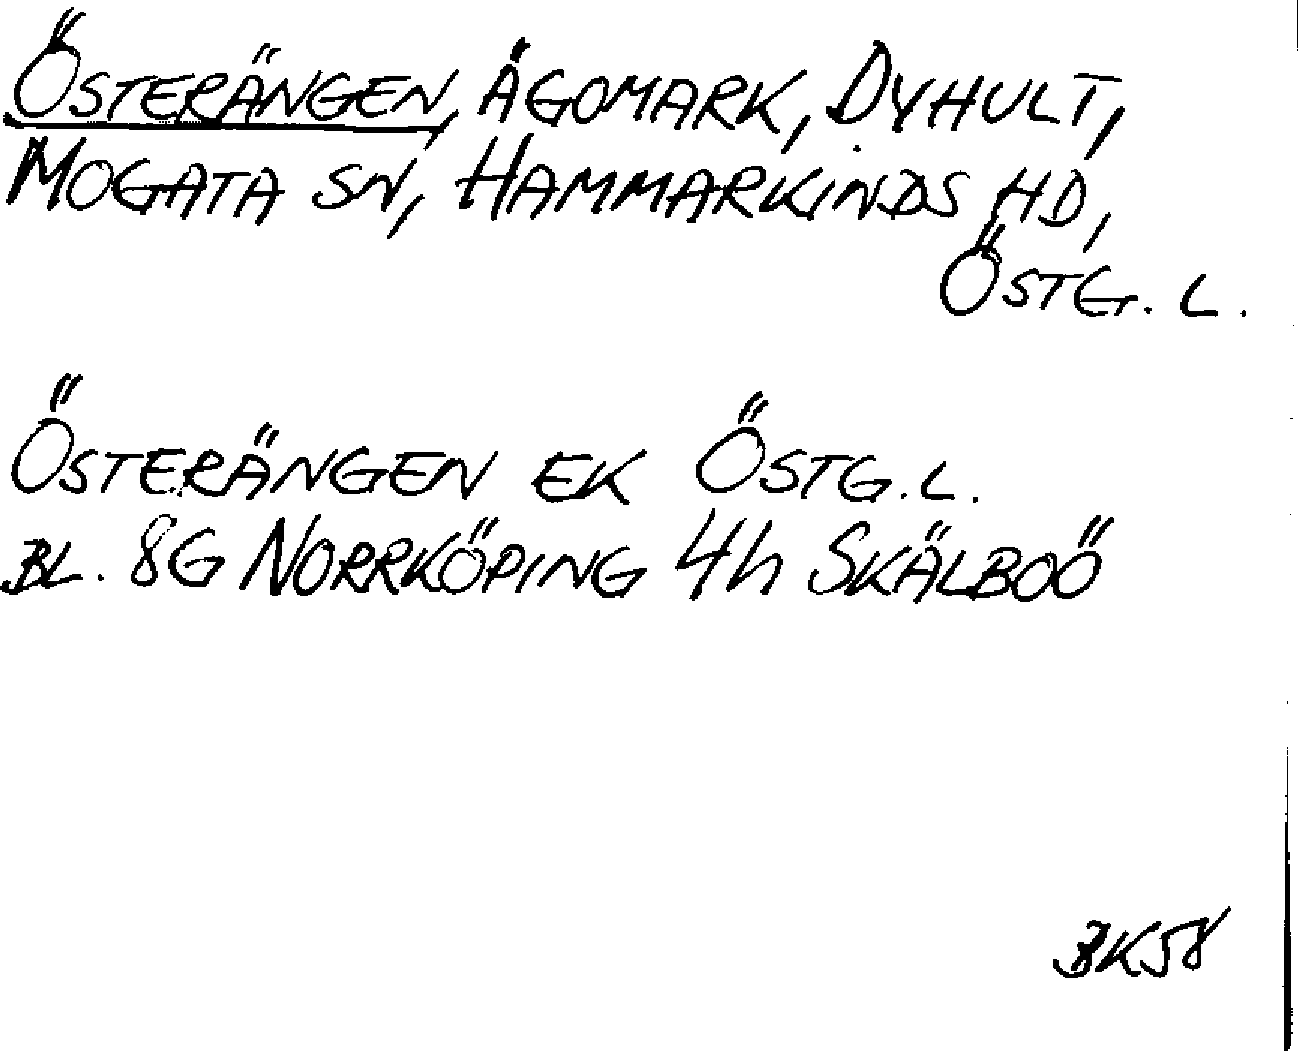 ÖSTERÄNGEN, ÄGOMARK, DYHULT,
MOGATA SN, HAMMARKINDS HD,
ÖSTG. L.
ÖSTERÄNGEN EK ÖSTG. L.
BL. 8G NORRKÖPING 4h SKÄLBOÖ
BK58